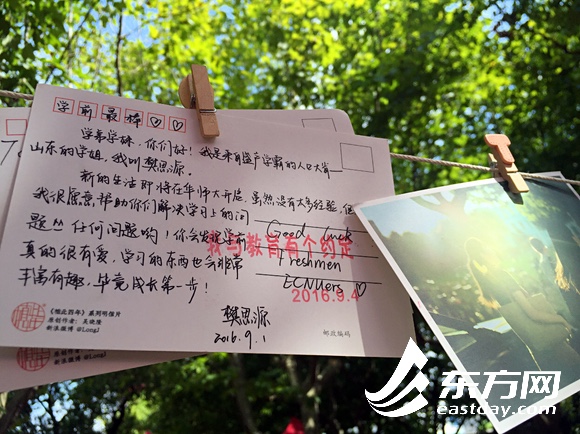 学前最棒♡♡
学弟学妹,你们好!我是来自盛产学霸的人口大省——
山东的学姐,我叫樊思源。
新的生活即将在华师大开启,虽然没有太多经验,但
我很愿意帮助你们解决学习上的问
题 任何问题哟!你会发现学前
真的很有爱,学习的东西也会非常
丰富有趣,毕竟成长第一步!
Good Luck
Freshmen
ECNUers ♡
我与教育有个约定
2016.9.4
樊思源
2016.9.1
《相此四年》系列明信片
原创作者:吴晓陵
新浪微博 @LongJ
邮政编码
新浪微博 @LongJ
东方网
eastday.com